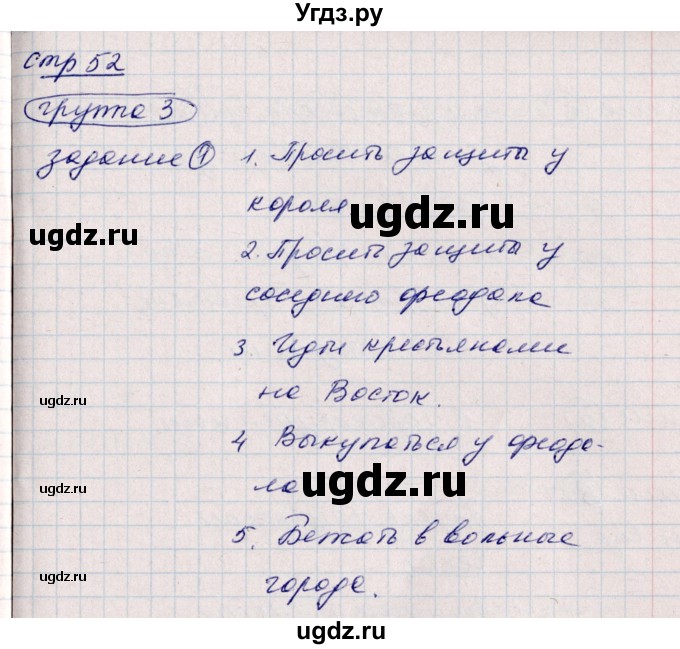 Угдз.ру
стр 52
группа 3
задание 1 1. Просить защиты у
короля
ugdz.ru
ugdz.ru
2. Просить защиты у
соседнего феодала
3. Идти крестьянами
на Восток.
ugdz.ru
4 Выкупаться у феода-
ла
ugdz.ru
ugdz.ru
5. Бежать в вольные
города.
ugdz.ru
ugdz.ru